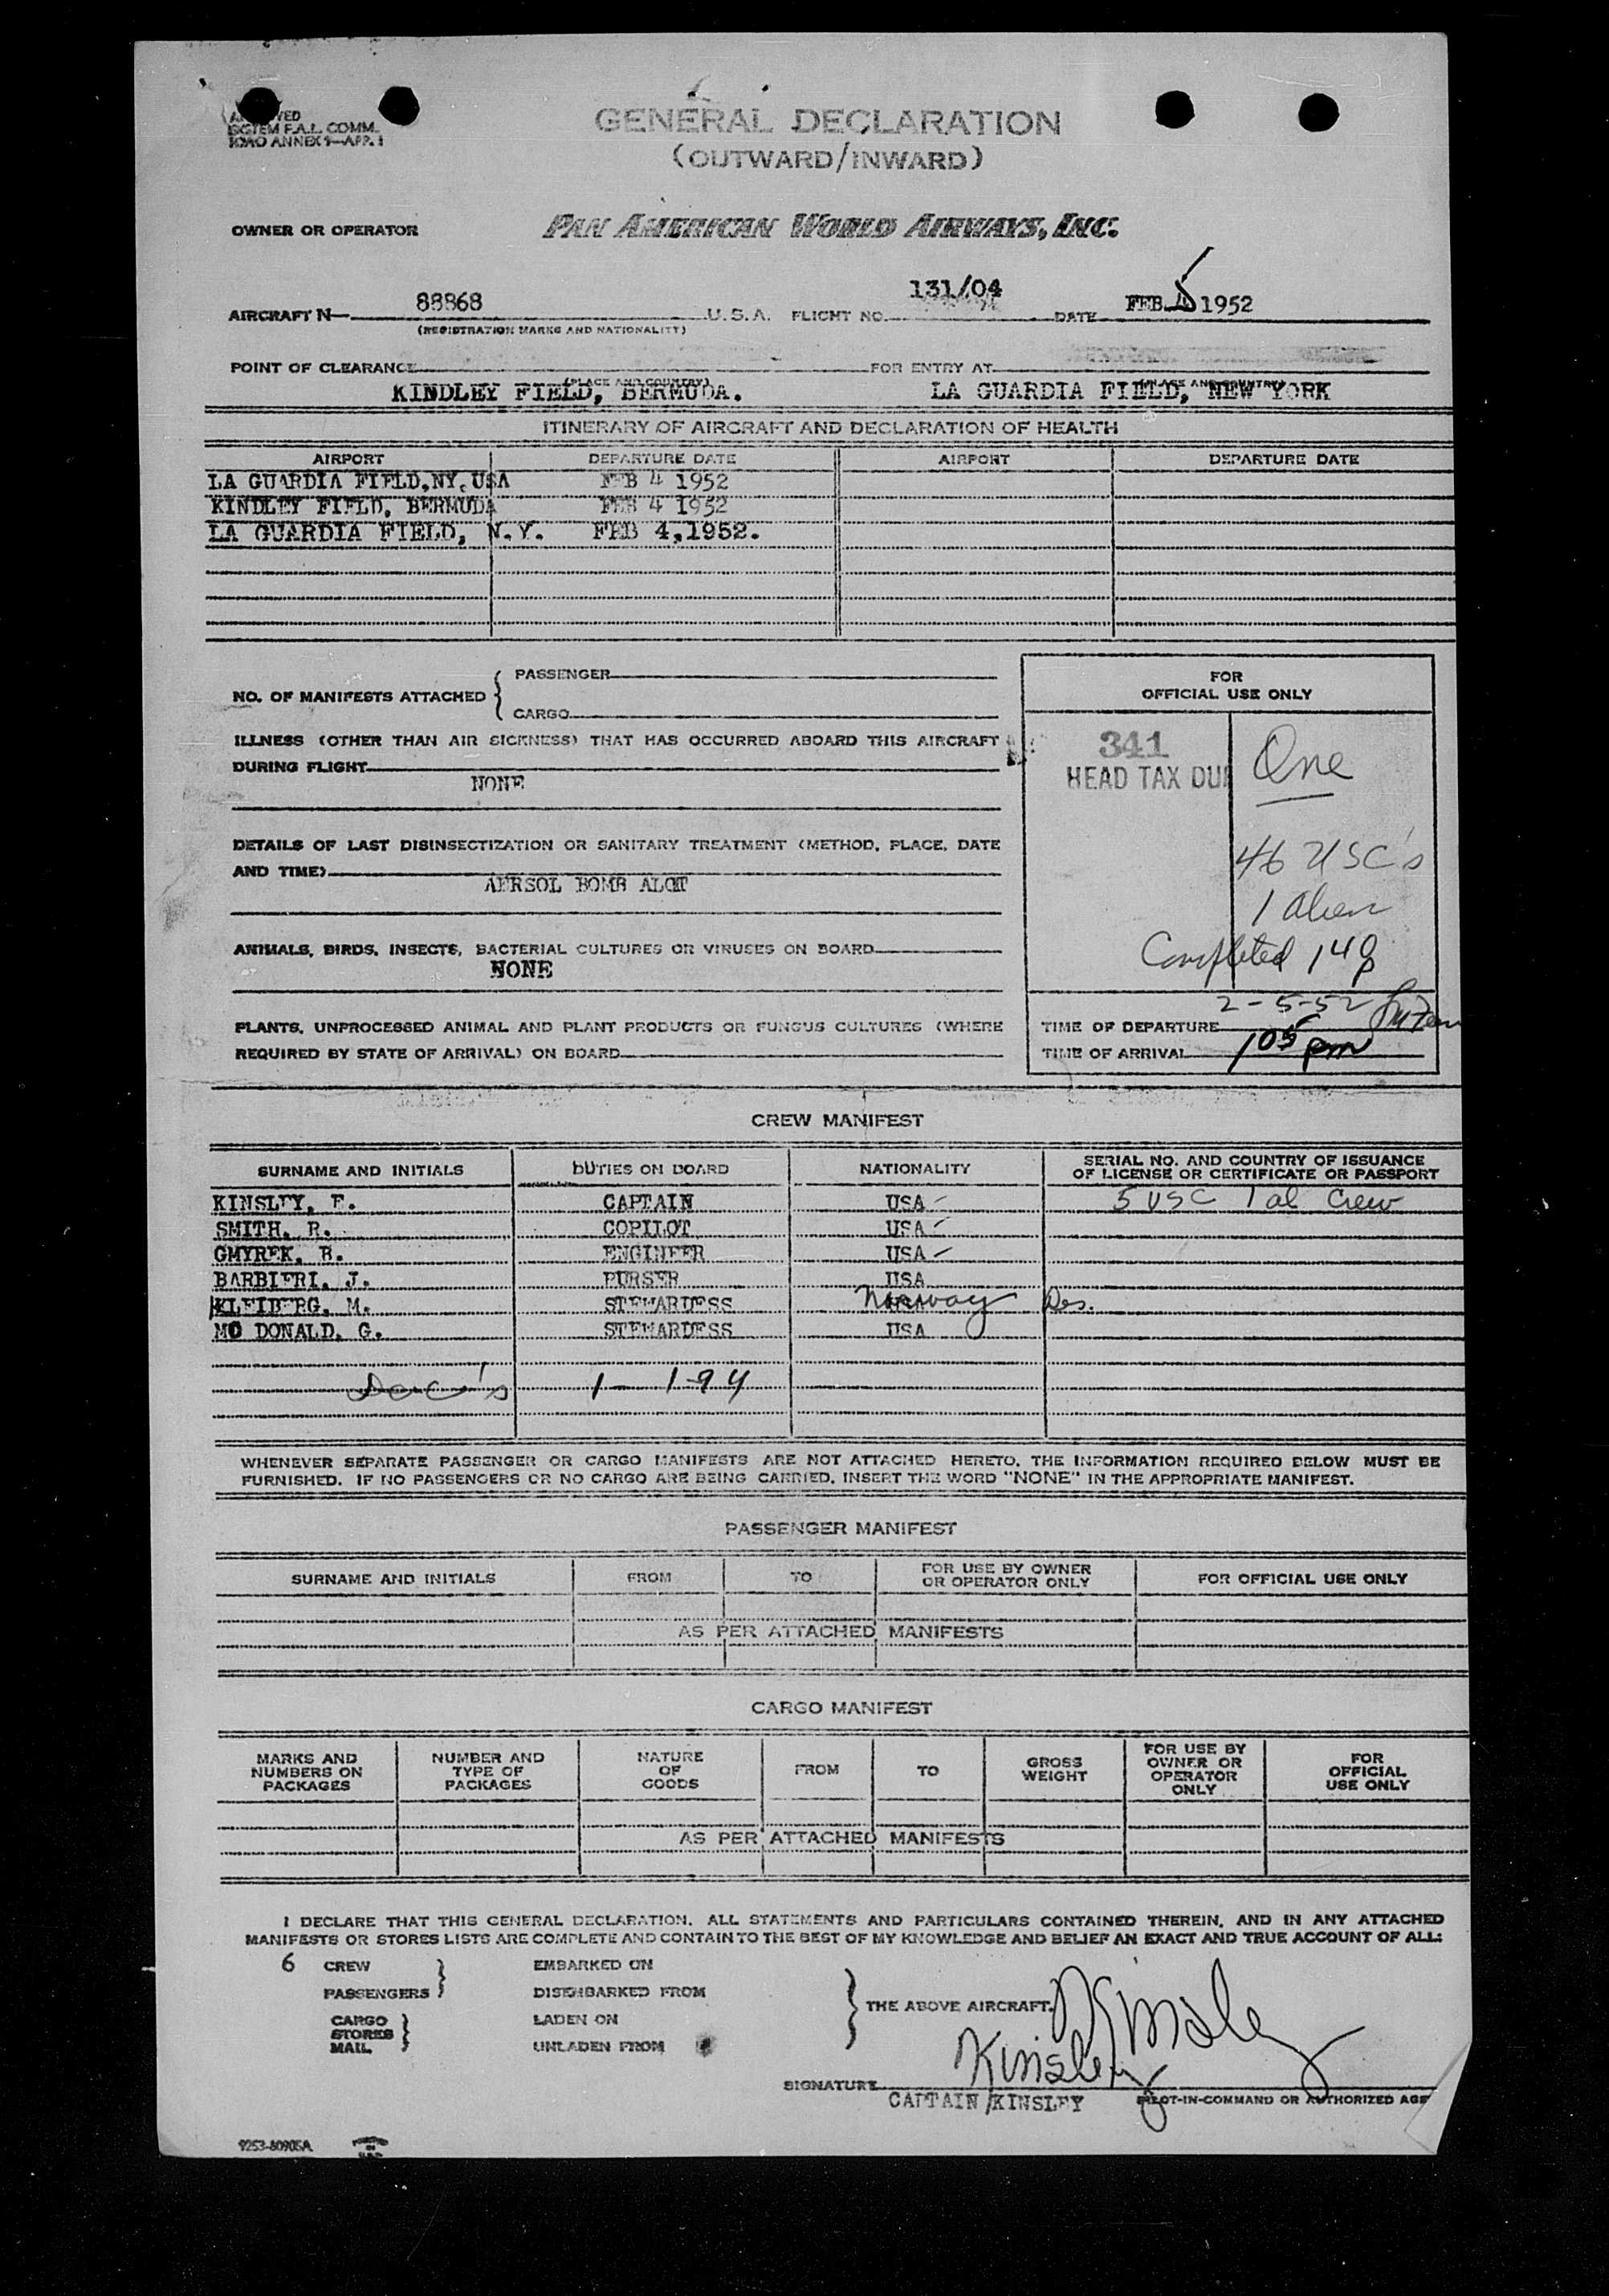 GENERAL DECLARATION
(OUTWARD/INWARD)
SYSTEM F.A.L. COMM.
ICAO ANNEX 9—APP. 1
OWNER OR OPERATOR PAN AMERICAN WORLD AIRWAYS, INC.
AIRCRAFT N— 88868 U. S. A. FLIGHT NO. 131/04 DATE FEB 5 1952
(REGISTRATION MARKS AND NATIONALITY)
POINT OF CLEARANCE FOR ENTRY AT
(PLACE AND COUNTRY) (PLACE AND COUNTRY)
KINDLEY FIELD, BERMUDA. LA GUARDIA FIELD, NEW YORK
ITINERARY OF AIRCRAFT AND DECLARATION OF HEALTH
AIRPORT DEPARTURE DATE AIRPORT DEPARTURE DATE
LA GUARDIA FIELD,NY,USA FEB 4 1952
KINDLEY FIELD, BERMUDA FEB 4 1952
LA GUARDIA FIELD, N.Y. FEB 4,1952.
NO. OF MANIFESTS ATTACHED
PASSENGER
CARGO
ILLNESS (OTHER THAN AIR SICKNESS) THAT HAS OCCURRED ABOARD THIS AIRCRAFT
DURING FLIGHT
NONE
DETAILS OF LAST DISINSECTIZATION OR SANITARY TREATMENT (METHOD, PLACE, DATE
AND TIME)
AERSOL BOMB ALQT
ANIMALS, BIRDS, INSECTS, BACTERIAL CULTURES OR VIRUSES ON BOARD
NONE
PLANTS, UNPROCESSED ANIMAL AND PLANT PRODUCTS OR FUNGUS CULTURES (WHERE
REQUIRED BY STATE OF ARRIVAL) ON BOARD
FOR
OFFICIAL USE ONLY
341
HEAD TAX DUE
One
46 USC's
1 alien
Completed 148
2-5-52
TIME OF DEPARTURE
TIME OF ARRIVAL 105 pm
CREW MANIFEST
SURNAME AND INITIALS DUTIES ON BOARD NATIONALITY SERIAL NO. AND COUNTRY OF ISSUANCE
OF LICENSE OR CERTIFICATE OR PASSPORT
KINSLEY, F. CAPTAIN USA 5 USC 1 al Crew
SMITH, R. COPILOT USA
GMYREK, B. ENGINEER USA
BARBIERI, J. PURSER USA
KLEIBERG, M. STEWARDESS Norway Des.
MC DONALD, G. STEWARDESS USA
Doc's 1- 1-94
WHENEVER SEPARATE PASSENGER OR CARGO MANIFESTS ARE NOT ATTACHED HERETO, THE INFORMATION REQUIRED BELOW MUST BE
FURNISHED. IF NO PASSENGERS OR NO CARGO ARE BEING CARRIED, INSERT THE WORD "NONE" IN THE APPROPRIATE MANIFEST.
PASSENGER MANIFEST
SURNAME AND INITIALS FROM TO FOR USE BY OWNER
OR OPERATOR ONLY FOR OFFICIAL USE ONLY
AS PER ATTACHED MANIFESTS
CARGO MANIFEST
MARKS AND
NUMBERS ON
PACKAGES
NUMBER AND
TYPE OF
PACKAGES
NATURE
OF
GOODS
FROM
TO
GROSS
WEIGHT
FOR USE BY
OWNER OR
OPERATOR
ONLY
FOR
OFFICIAL
USE ONLY
AS PER ATTACHED MANIFESTS
I DECLARE THAT THIS GENERAL DECLARATION, ALL STATEMENTS AND PARTICULARS CONTAINED THEREIN, AND IN ANY ATTACHED
MANIFESTS OR STORES LISTS ARE COMPLETE AND CONTAIN TO THE BEST OF MY KNOWLEDGE AND BELIEF AN EXACT AND TRUE ACCOUNT OF ALL:
6 CREW EMBARKED ON
PASSENGERS DISEMBARKED FROM
CARGO LADEN ON
STORES
MAIL UNLADEN FROM
THE ABOVE AIRCRAFT. Kinsley
SIGNATURE Kinsley
CAPTAIN KINSLEY PILOT-IN-COMMAND OR AUTHORIZED AGE
9253-80905A